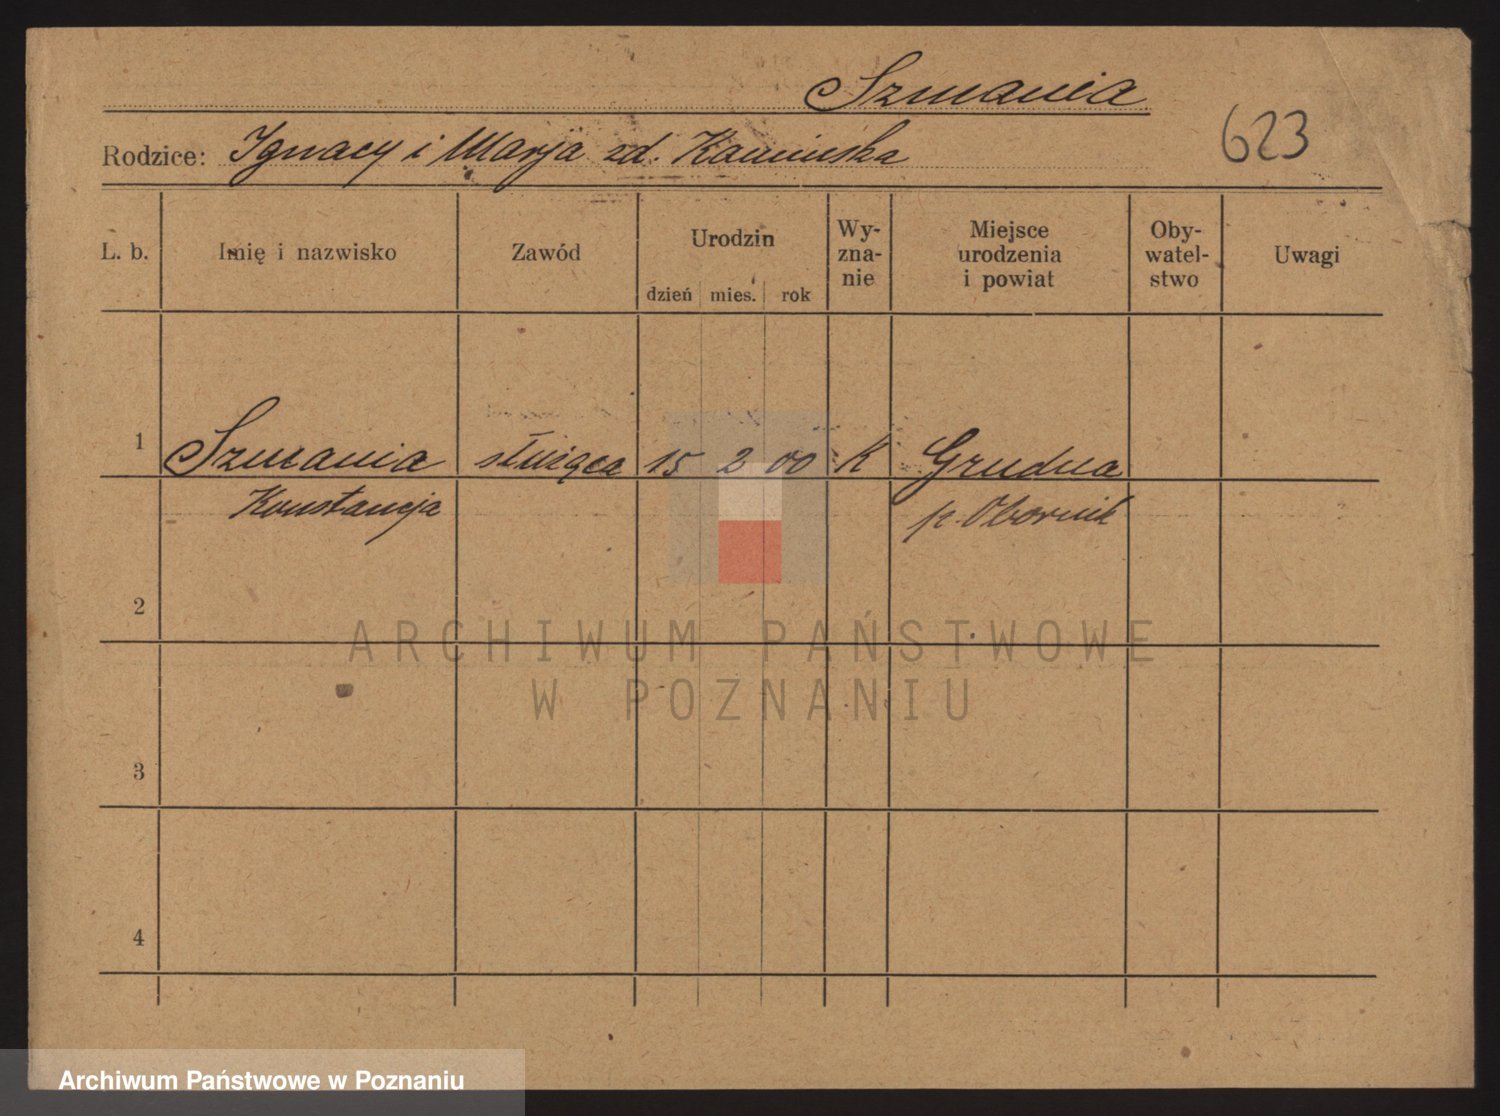 Szmania
623
Rodzice: Ignacy i Marja zd. Kamińska
L. b. Imię i nazwisko Zawód Urodzin Wy- zna- nie Miejsce urodzenia i powiat Oby- watel- stwo Uwagi
dzień mies. rok
1 Szmania służąca 15 2 00 K Grudna
Konstancja p. Obornik
2
ARCHIWUM PAŃSTWOWE
W POZNANIU
3
4
Archiwum Państwowe w Poznaniu